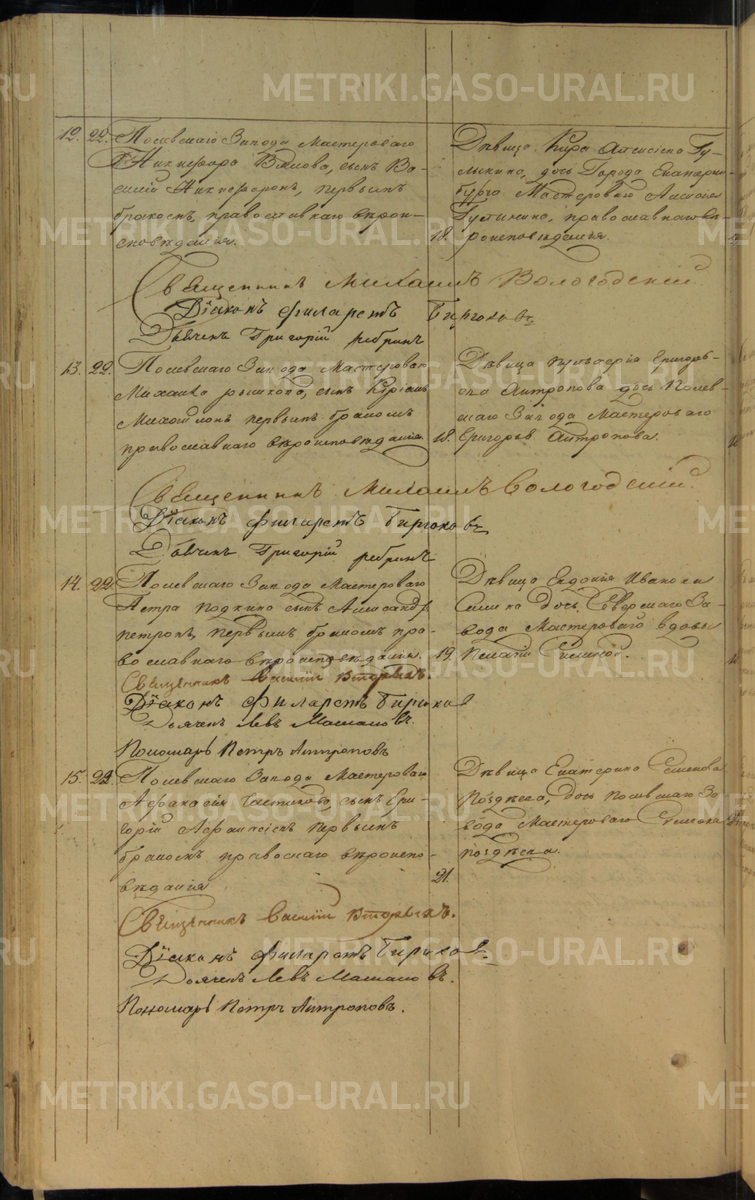 METRIKI.GASO-URAL.RU
12. 22. Полевшаго Завода Мастероваго
Никифора сынъ Ва-
силій Никифоровъ, первымъ
бракомъ, православнаго вѣрои-
сповѣданія.
Дѣвица Кира Алексіева
дочь Города Екатерин-
бурга Мастероваго Алексія
православнаго вѣ-
18. роисповѣданія.
Священникъ Михаилъ Вологодскій
Діаконъ Филаретъ Бирюковъ
Дьячекъ Григорій Ребринъ
13. 22. Полевшаго Завода Мастероваго
Михаила сынъ
Михайловъ первымъ бракомъ
православнаго вѣроисповѣданія.
Дѣвица Григорь-
ева Антропова дочь Полев-
шаго Завода Мастероваго
18. Григорья Антропова.
Священникъ Михаилъ Вологодскій.
Діаконъ Филаретъ Бирюковъ
Дьячекъ Григорій Ребринъ
14. 22. Полевшаго Завода Мастероваго
Петра сынъ Александръ
Петровъ, первымъ бракомъ пра-
вославнаго вѣроисповѣданія.
Дѣвица Евдокія Иванова
дочь Сѣверскаго За-
вода Мастероваго вдовы
19.
Священникъ Василій Вторыхъ.
Діаконъ Филаретъ Бирюковъ
Дьячекъ Левъ
Пономарь Петръ Антроповъ
15. 22. Полевшаго Завода Мастероваго
сынъ Гри-
горій первымъ
бракомъ правоснаго вѣроиспо-
вѣданія
Дѣвица Екатерина Семенова
Поздѣева, дочь Полевшаго За-
вода Мастероваго Семена
Поздѣева.
21.
Священникъ Василій Вторыхъ.
Діаконъ Филаретъ Бирюковъ
Дьячекъ Левъ
Пономарь Петръ Антроповъ.